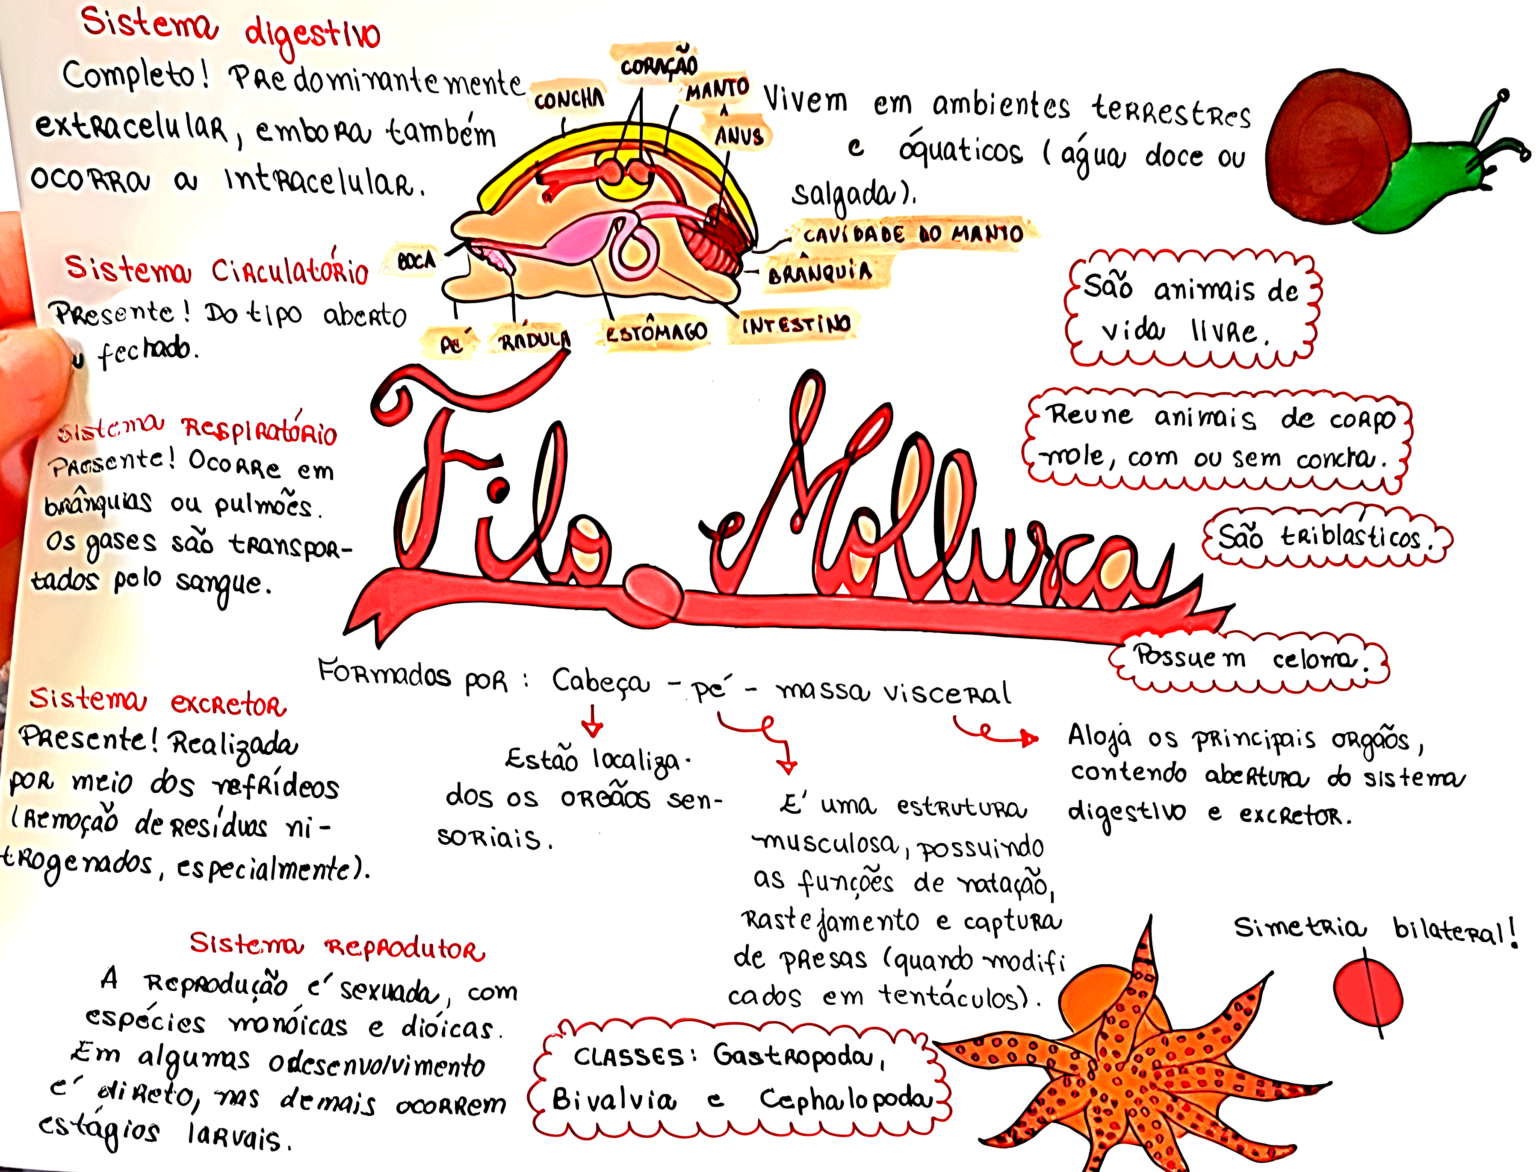 Sistema digestivo
Completo! Predominantemente
extracelular, embora também
ocorra a intracelular.
CONCHA
CORAÇÃO
MANTO
ÂNUS
BOCA
CAVIDADE DO MANTO
BRÂNQUIA
PÉ
RÁDULA
ESTÔMAGO
INTESTINO
Vivem em ambientes terrestres
e áquaticos (água doce ou
salgada).
Sistema Circulatório
Presente! Do tipo aberto
ou fechado.
São animais de
vida livre.
Reune animais de corpo
mole, com ou sem concha.
São triblásticos.
Possuem celoma.
Sistema Respiratório
Presente! Ocorre em
brânquias ou pulmões.
Os gases são transpor-
tados pelo sangue.
Filo Mollusca
Formados por: Cabeça - pé - massa visceral
Estão localiza-
dos os orgãos sen-
soriais.
É uma estrutura
musculosa, possuindo
as funções de natação,
rastejamento e captura
de presas (quando modifi
cados em tentáculos).
Aloja os principais orgãos,
contendo abertura do sistema
digestivo e excretor.
Sistema excretor
Presente! Realizada
por meio dos nefrídeos
(remoção de resíduos ni-
trogenados, especialmente).
Sistema reprodutor
A reprodução é sexuada, com
espécies monóicas e dióicas.
Em algumas o desenvolvimento
é direto, nas demais ocorrem
estágios larvais.
CLASSES: Gastropoda,
Bivalvia e Cephalopoda
Simetria bilateral!